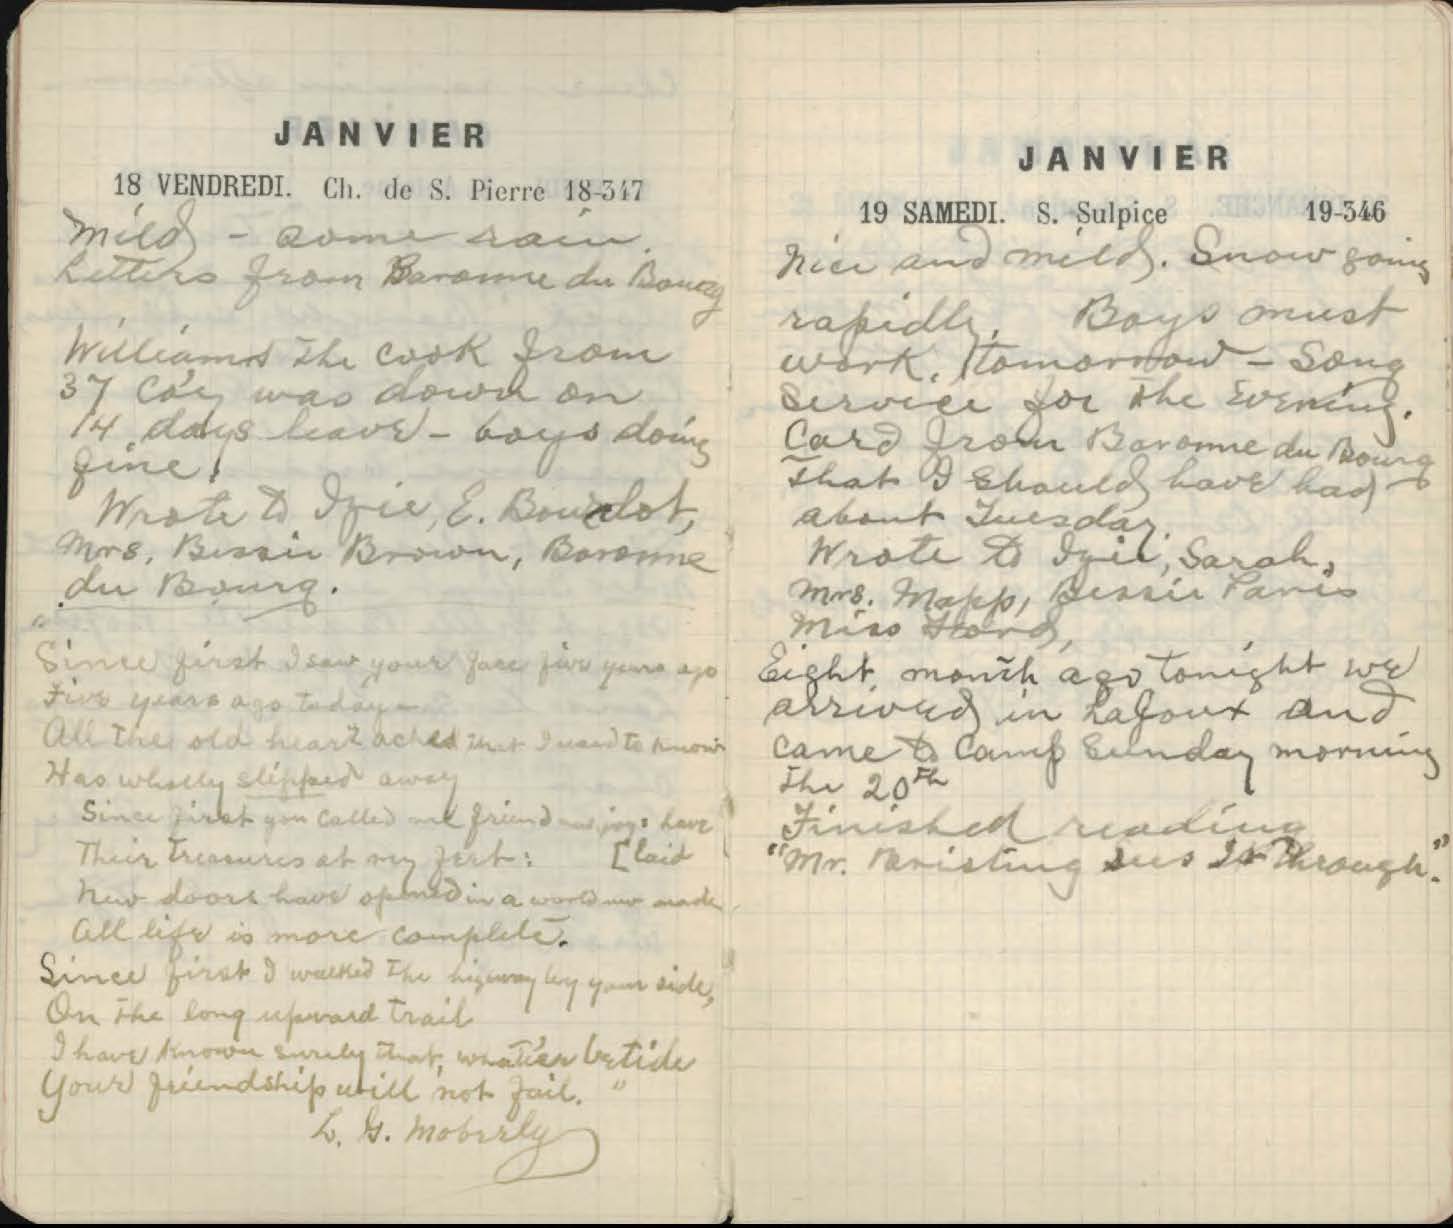 JANVIER
18 VENDREDI. Ch. de S. Pierre 18-347
Mild - some rain.
Letters from Baronne du Bourg
Williams the cook from
37 Co'y was down on
14 days leave - boys doing
fine.
Wrote to Izie, E. Bourdot,
Mrs. Bessie Brown, Baronne
du Bourg.
"
Since first I saw your face five years ago
Five years ago today -
All the old heart aches that I used to know
Has wholly slipped away
Since first you called me friend new joys have
Their treasures at my feet: [laid
New doors have opened in a world new made
All life is more complete.
Since first I walked the higway by your side,
On the long upward trail
I have known surely that, whate'er betide
Your friendship will not fail. "
L. G. Moberly
JANVIER
19 SAMEDI. S. Sulpice 19-346
Nice and mild. Snow going
rapidly. Boys must
work, tomorrow - Song
service for the evening.
Card from Baronne du Bourg
that I should have had
about Tuesday.
Wrote to Izie, Sarah,
Mrs. Mapp, Bessie Paris
Miss
Eight month ago tonight we
arrived in LaJoux and
came to Camp Sunday morning
the 20th
Finished reading
"Mr. Bristling Sees It Through."